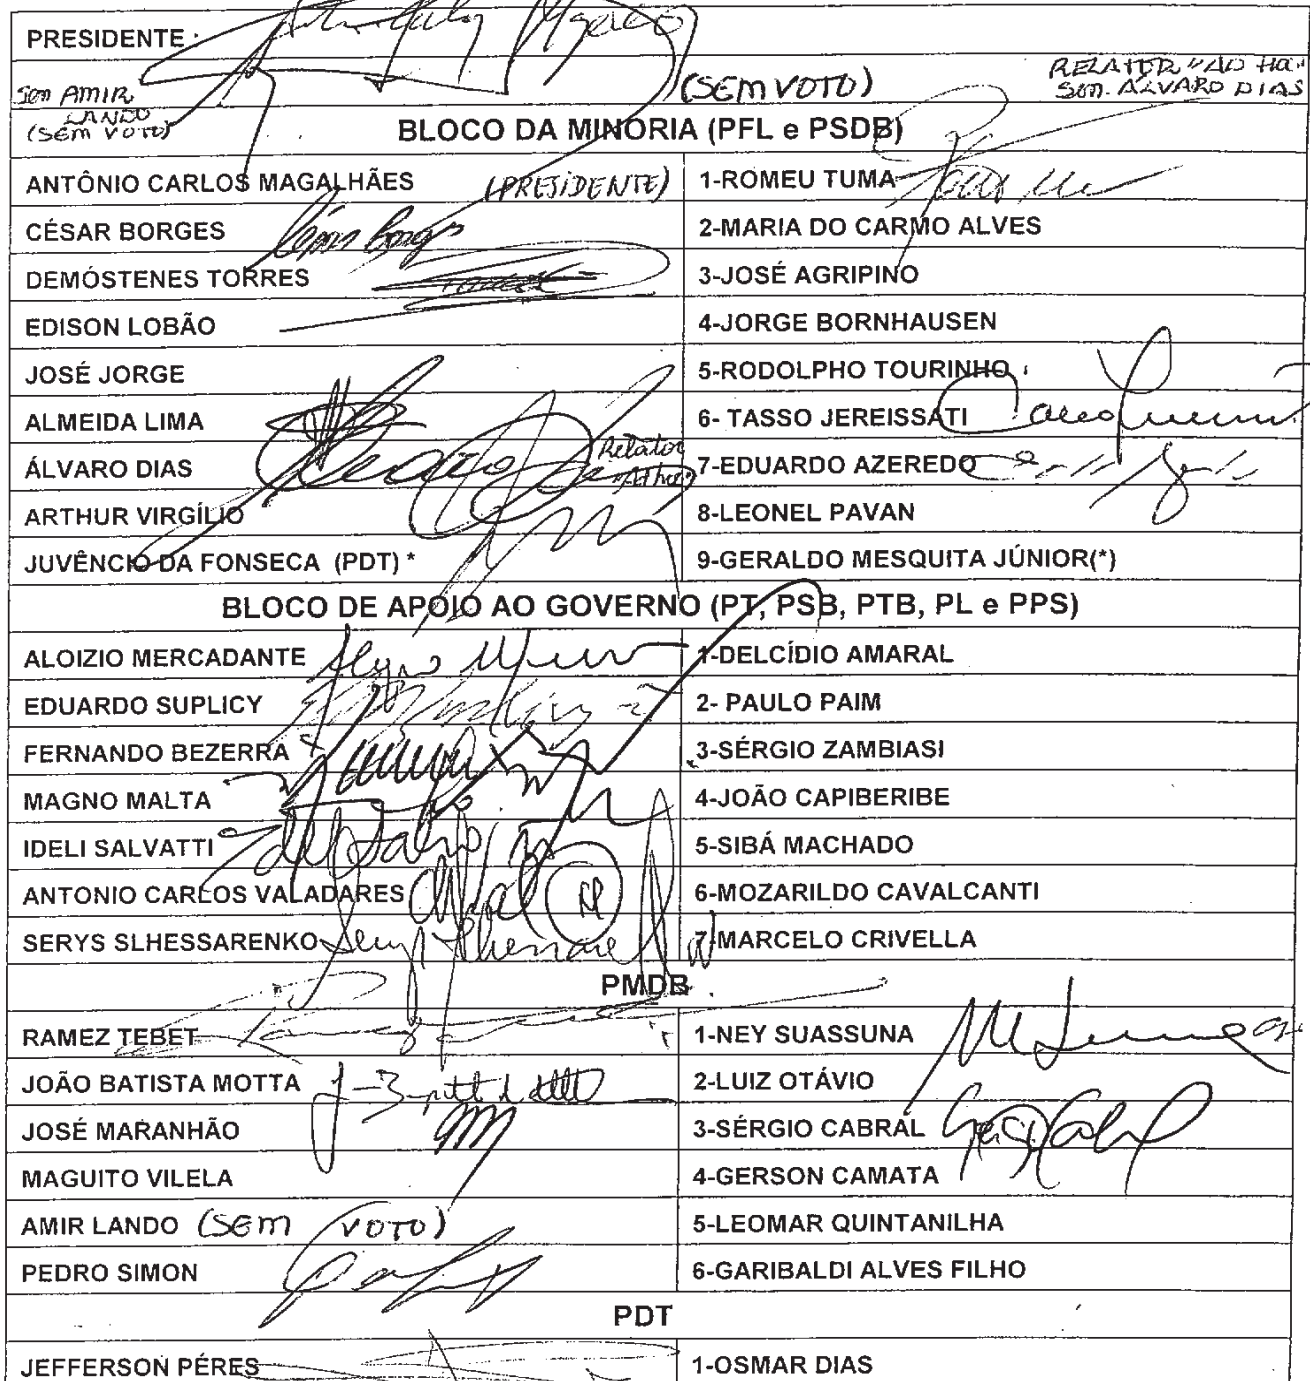 PRESIDENTE :
(SEM VOTO)
RELATOR "AD HOC"
SEN. ÁLVARO DIAS
SEN AMIR
LANDO
(SEM VOTO)
BLOCO DA MINORIA (PFL e PSDB)
ANTÔNIO CARLOS MAGALHÃES (PRESIDENTE) 1-ROMEU TUMA
CÉSAR BORGES 2-MARIA DO CARMO ALVES
DEMÓSTENES TORRES 3-JOSÉ AGRIPINO
EDISON LOBÃO 4-JORGE BORNHAUSEN
JOSÉ JORGE 5-RODOLPHO TOURINHO
ALMEIDA LIMA 6- TASSO JEREISSATI
ÁLVARO DIAS Relator 7-EDUARDO AZEREDO
ARTHUR VIRGÍLIO 8-LEONEL PAVAN
JUVÊNCIO DA FONSECA (PDT) * 9-GERALDO MESQUITA JÚNIOR(*)
BLOCO DE APOIO AO GOVERNO (PT, PSB, PTB, PL e PPS)
ALOIZIO MERCADANTE 1-DELCÍDIO AMARAL
EDUARDO SUPLICY 2- PAULO PAIM
FERNANDO BEZERRA 3-SÉRGIO ZAMBIASI
MAGNO MALTA 4-JOÃO CAPIBERIBE
IDELI SALVATTI 5-SIBÁ MACHADO
ANTONIO CARLOS VALADARES 6-MOZARILDO CAVALCANTI
SERYS SLHESSARENKO 7-MARCELO CRIVELLA
PMDB
RAMEZ TEBET 1-NEY SUASSUNA
JOÃO BATISTA MOTTA 2-LUIZ OTÁVIO
JOSÉ MARANHÃO 3-SÉRGIO CABRAL
MAGUITO VILELA 4-GERSON CAMATA
AMIR LANDO (SEM VOTO) 5-LEOMAR QUINTANILHA
PEDRO SIMON 6-GARIBALDI ALVES FILHO
PDT
JEFFERSON PÉRES 1-OSMAR DIAS